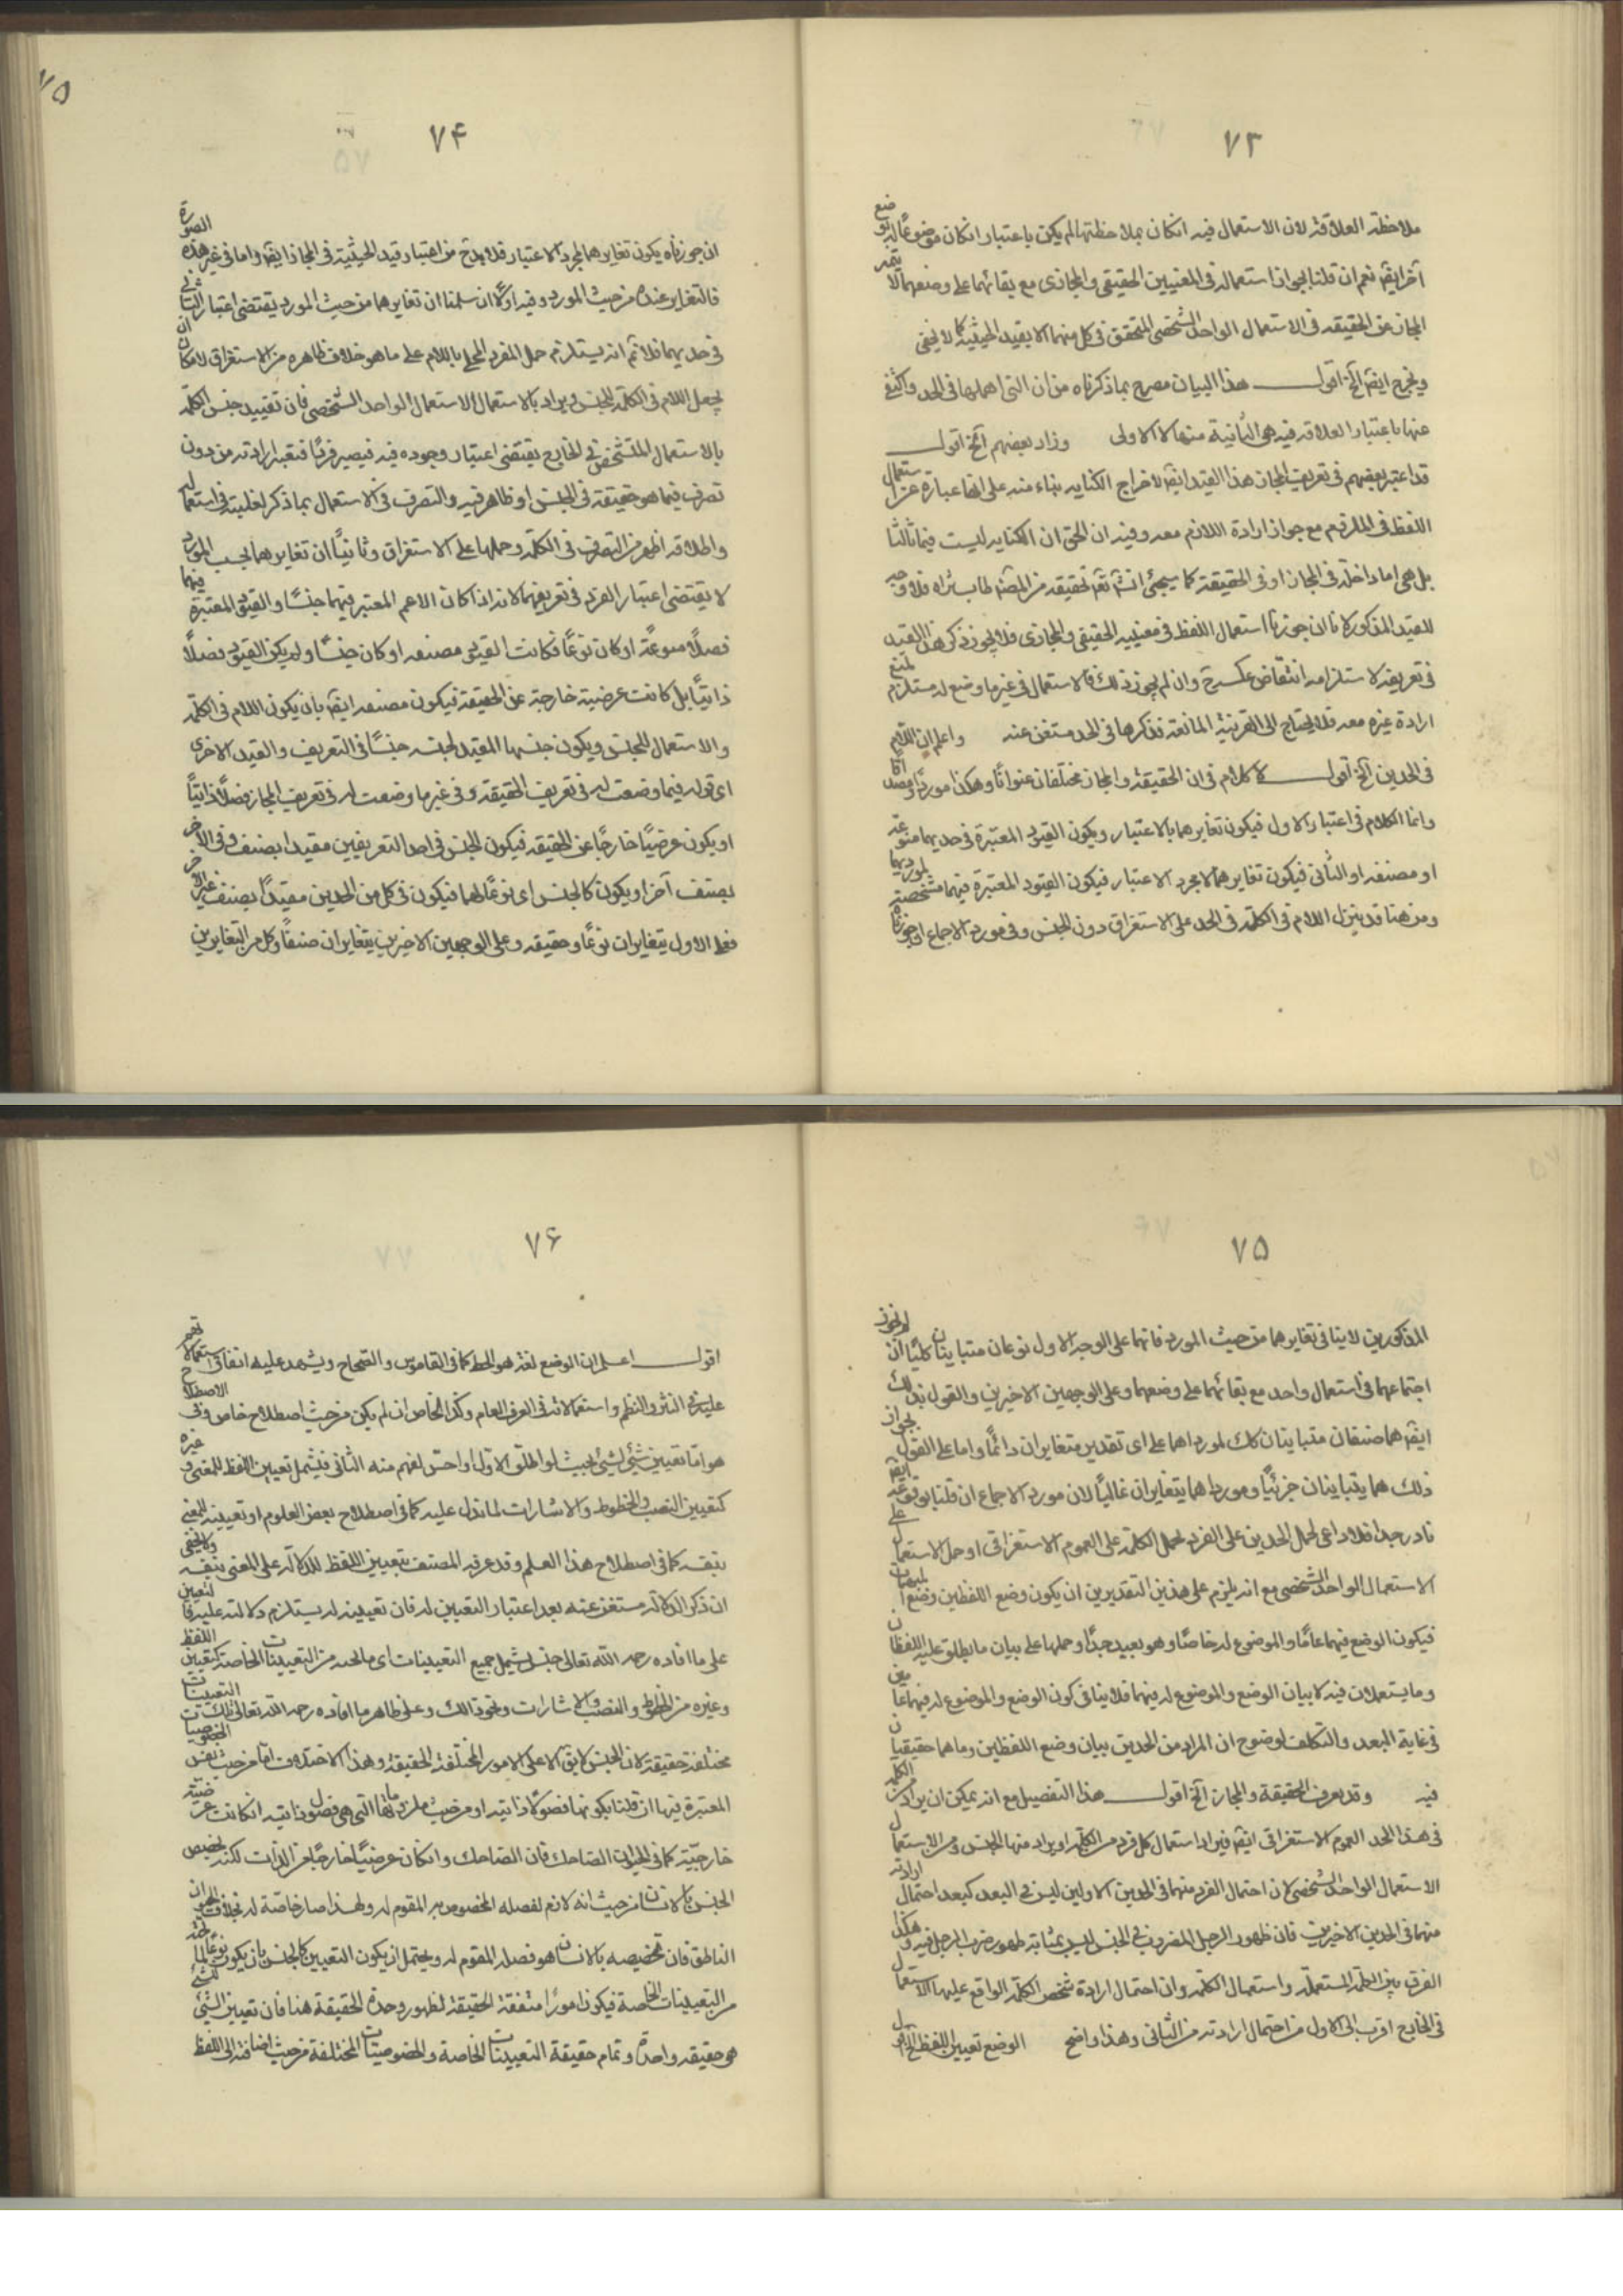 ۷۳
ملاحظة العلاقة لان الاستعمال فيه انكان بملاحظتها لم يكن باعتبار انكان موضوعًا له بوضع
آخر ايضًا نعم ان قلنا بجواز استعماله فى المعنيين الحقيقى والمجازى مع بقائهما على وضعهما لا يتميز
المجاز عن الحقيقه فى الاستعمال الواحد الشخصى المتحقق فى كل منهما الا بقيد الحيثية كما لا يخفى
ويخرج ايضًا الخ اقول هذا البيان مصرح بما ذكرناه من ان التى اهملها فى الحد واكتفى
عنها باعتبار العلاقه فيه هى الثانية منها لا الاولى وزاد بعضهم الخ اقول
قد اعتبر بعضهم فى تعريف المجاز هذا القيد ايضًا لاخراج الكنايه بناء منه على انها عبارة عن استعمال
اللفظ فى الملزوم مع جواز ارادة اللازم معه وفيه ان الحق ان الكنايه ليست قسمًا ثالثا
بل هى اما داخلة فى المجاز او فى الحقيقة كما سيجئ انشاء الله تعالى تحقيقه من المصنف طاب ثراه فلا وجه
للقيد المذكور لانا ان جوزنا استعمال اللفظ فى معنييه الحقيقى والمجازى فلا يجوز ذكر هذا القيد
فى تعريفه لاستلزامه انتقاض عكسه ح وان لم يجوز ذلك فالاستعمال فى غير ما وضع له مستلزم لمنع
ارادة غيره معه فلا يحتاج الى القرينة المانعة فذكرها فى الحد مستغن عنه واعلم ان اللام
فى الحدين الخ اقول لا كلام فى ان الحقيقة والمجاز مختلفان عنوانًا وهكذا موردًا ومصداقا
وانما الكلام فى اعتبار الاول فيكون تغايرهما بالاعتبار ويكون القيود المعتبرة فى حديهما منوعة
او مصنفه او الثانى فيكون تغايرهما لا بمجرد الاعتبار فيكون القيود المعتبرة فيهما مشخصة لموردهما
ومن هنا قد ينزل اللام فى الكلمة فى الحد على الاستغراق دون الجنس وفى مورد الاجماع او جوزناه
۷۴
ان جوزناه يكون تغايرهما بمجرد الاعتبار فلا بد ح من اعتبار قيد الحيثية فى المجاز ايضًا واما فى غير هذه الصورة
فالتغاير عنده من حيث المورد وفيه اولًا ان سلمنا ان تغايرهما من حيث المورد يقتضى اعتبار الثانى
فى حديهما فلا نم انه يستلزم حمل المفرد المحلى باللام على ما هو خلاف ظاهره من الاستغراق لامكان ان
يجعل اللام فى الكلمة للجنس ويراد بالاستعمال الاستعمال الواحد الشخصى فان تقييد جنس الكلمة
بالاستعمال المتشخص فى الخارج يقتضى اعتبار وجوده فيه فيصير فردًا فتعبه ارادته من دون
تصرف فيما هو حقيقة فى الجنس او ظاهر فيه والتصرف فى الاستعمال بما ذكر لغلبته فى استعماله
واطلاقه اظهر من التصرف فى الكلمة وحملها على الاستغراق وثانيًا ان تغايرهما بحسب المورد
لا يقتضى اعتبار الفرد فى تعريفهما لانه اذا كان الاعم المعتبر فيهما جنسًا والقيود المعتبرة فيهما
فصلًا منوعةً او كان نوعًا فكانت القيود مصنفه او كان جنسًا ولم يكن القيود فصلًا
ذاتيًا بل كانت عرضية خارجة عن الحقيقة فيكون مصنفه ايضًا بان يكون اللام فى الكلمة
والاستعمال للجنس ويكون جنسها المقيد لجنسه جنسًا فى التعريف والقيد الاخرى
اى قوله فيما وضعت له فى تعريف الحقيقة وفى غير ما وضعت له فى تعريف المجاز فصلًا ذاتيًا
او يكون عرضيًا خارجًا عن الحقيقه فيكون الجنس فى احد التعريفين مقيدا بصنف وفى الآخر
بصنف آخر او يكون كالجنس اى نوعًا لهما فيكون فى كل من الحدين مقيدًا بصنف غير الآخر
فعلى الاول يتغايران نوعًا وحقيقه وعلى الوجهين الاخيرين يتغايران صنفًا وكل من التغايرين
۷۵
المذكورين لا ينافى تغايرهما من حيث المورد فانهما على الوجه الاول نوعان متباينان كليًا ان لم نجوز
اجتماعهما فى استعمال واحد مع بقائهما على وضعهما وعلى الوجهين الاخيرين والقول بذلك
ايضًا هما صنفان متباينان كك لمورداهما على اى تقدير متغايران دائمًا واما على القول بجواز
ذلك هما يتباينان جزئيًا ومورداهما يتغايران غالبًا لان مورد الاجماع ان قلنا بوقوعه ايضًا
نادر جدا فلا داعى لحمل الحدين على الفرد بحمل الكلمة على العموم الاستغراقى او حمل الاستعمال على
الاستعمال الواحد الشخصى مع انه يلزم على هذين التقديرين ان يكون وضع اللفظين وضع المبهمات
فيكون الوضع فيهما عامًا والموضوع له خاصًا وهو بعيد جدًا وحملها على بيان ما يطلق عليه اللفظان
وما يستعملان فيه لا بيان الوضع والموضوع له فيهما فلا ينافى كون الوضع والموضوع له فيهما عامين
فى غاية البعد والتكلف لوضوح ان المراد من الحدين بيان وضع اللفظين وما هما حقيقيان
فيه وقد يعرف الحقيقة والمجاز الخ اقول هذا التفصيل مع انه يمكن ان يراد من الكلمة
فى هذا الحد العموم الاستغراقى ايضًا فيراد استعمال كل فرد من الكلمة او يراد منها الجنس ومن الاستعمال
الاستعمال الواحد الشخصى لان احتمال الفرد منهما فى الحدين الاولين ليس فى البعد كبعد احتمال ارادته
منهما فى الحدين الاخيرين فان ظهور الرجل المضروب فى الجنس ليس بمثابة ظهور ضرب الرجل فيه وهكذا
الفرق بين الكلمة المستعملة واستعمال الكلمة وان احتمال ارادة شخص الكلمة الواقع عليها الاستعمال
فى الخارج اقرب الى الاول من احتمال ارادته من الثانى وهذا واضح الوضع تعيين اللفظ الخ
۷۶
اقول اعلم ان الوضع لغة هو الحط كما فى القاموس والصحاح ويشهد عليه اتفاق استعمالاتهم
عليه فى النثر والنظم واستعمالاته فى العرف العام وكذا الخاص ان لم يكن من حيث اصطلاح خاص وفى الاصطلاح
هو اما تعيين شئ لشئ بحيث لو اطلق الاول او احس لفهم منه الثانى فيشمل تعيين اللفظ للمعنى وغيره
كتعيين النصب والخطوط والاشارات لما تدل عليه كما فى اصطلاح بعض العلوم او تعيينه للمعنى
بنفسه كما فى اصطلاح هذا العلم وقد عرفه المصنف بتعيين اللفظ للدلالة على المعنى بنفسه ولا يخفى
ان ذكر الدلالة مستغن عنه بعد اعتبار التعيين له فان تعيينه له يستلزم دلالته عليه فالتعيين
على ما افاده رحمه الله تعالى جنس يشمل جميع التعيينات اى ما تحته من التعيينات الخاصة كتعيين اللفظ
وغيره من الخطوط والنصب والاشارات ونحو ذالك وعلى ظاهر ما افاده رحمه الله تعالى تلك التعيينات
مختلفة حقيقة لان الجنس لا يق الا على الامور المختلفة الحقيقة وهذا الاختلاف اما من حيث نفس الخصوصيات
المعتبرة فيها ان قلنا بكونها فصولًا ذاتيه او من حيث ملزوماتها التى هى فصول ذاتيه ان كانت عرضية
خارجيّة كما فى الحيوان الضاحك فان الضاحك وان كان عرضيًا خارجًا عن الذات لكنه يخصص
الجنس بالانسان من حيث انه لازم لفصله المخصوص به المقوم له ولهذا صار خاصة له بخلاف الحيوان
الناطق فان تخصيصه بالانسان هو فصله المقوم له ويحتمل ان يكون التعيين كالجنس بان يكون نوعًا لما تحته
من التعيينات الخاصة فيكون امورًا متفقة الحقيقة لظهور وحدة الحقيقة هنا فان تعيين الشئ للشئ
هو حقيقه واحدة وتمام حقيقة التعيينات الخاصة والخصوصيات المختلفة من حيث اضافته الى اللفظ